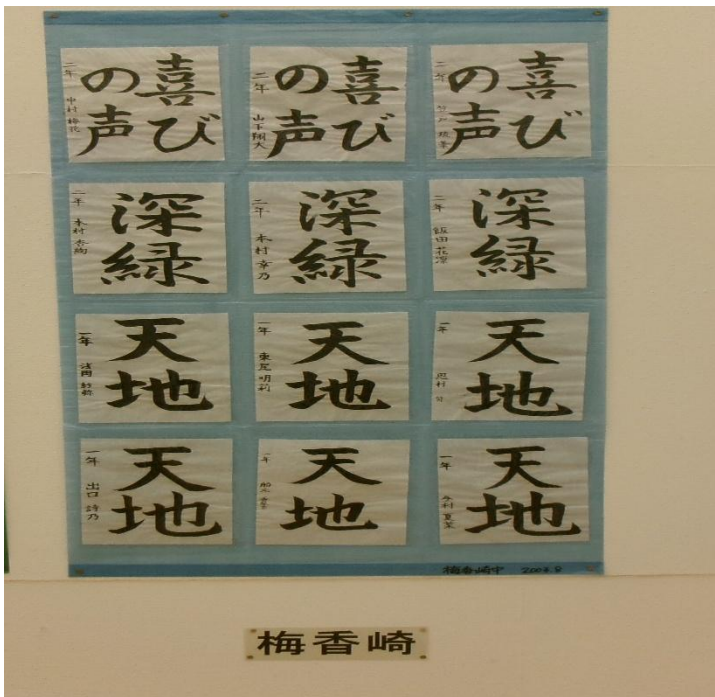 喜び
の声
二年 中村 梅花
喜び
の声
二年 山下翔大
喜び
の声
二年
深緑
二年 木村
深緑
二年 木村幸乃
深緑
二年 飯田花凛
天地
一年 浅岡
天地
一年 東尾明莉
天地
一年
天地
一年 出口 詩乃
天地
一年
天地
一年 今村夏菜
梅香崎中 2008.8
梅香崎